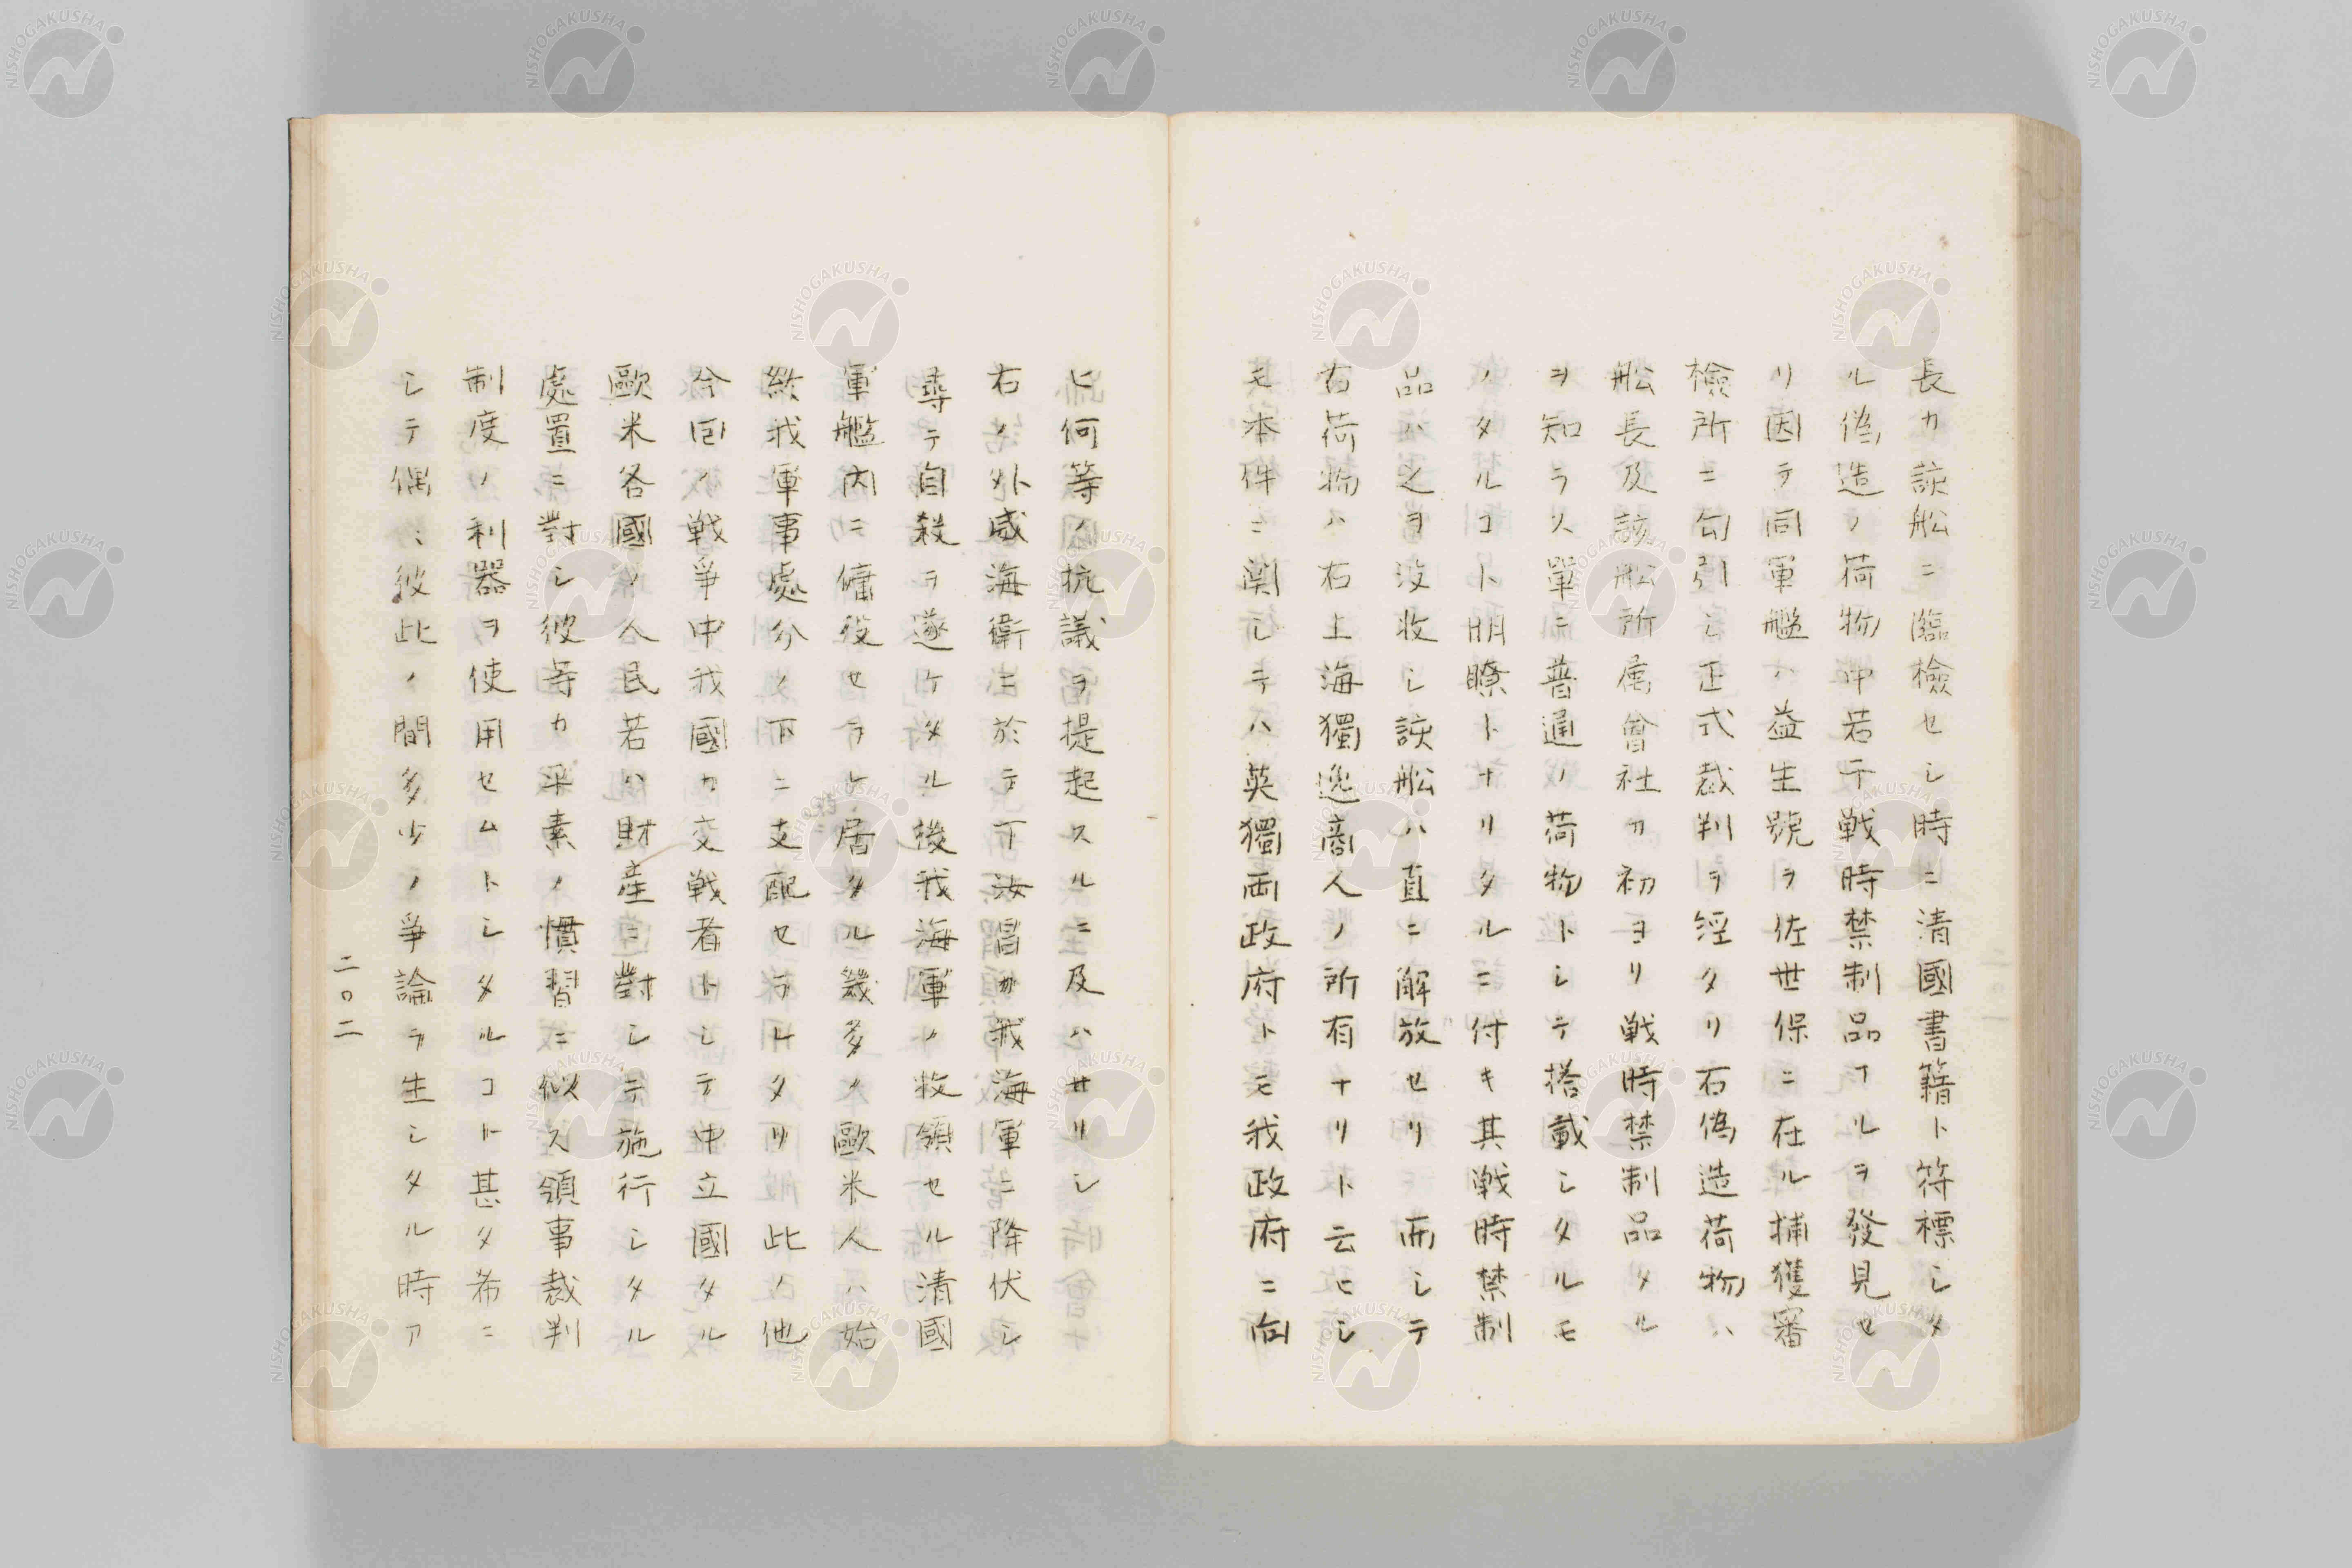 長カ該舩ニ臨檢セシ時ニ清國書籍ト符標シタ
ル偽造ノ荷物中若干戦時禁制品アルヲ發見セ
リ因テ同軍艦ハ益生號ヲ佐世保ニ在ル捕獲審
檢所ニ勾引シ正式裁判ヲ經タリ右偽造荷物ハ
舩長及該舩所属會社カ初ヨリ戦時禁制品タル
ヲ知ラス單ニ普通ノ荷物トシテ搭載シタルモ
ノタルコト明瞭トナリタルニ付キ其戦時禁制
品ハ之ヲ没收シ該舩ハ直ニ解放セリ而シテ
右荷物ハ右上海獨逸商人ノ所有ナリト云ヒシ
モ本件ニ関シテハ英獨両政府トモ我政府ニ向
ヒ何等ノ抗議ヲ提起スルニ及ハサリシ
右ノ外威海衛ニ於テ丁汝昌カ我海軍ニ降伏シ
尋テ自殺ヲ遂ケタル後我海軍ノ收領セル清國
軍艦内ニ傭役セラレ居タル幾多ノ歐米人ハ始
終我軍事處分ノ下ニ支配セラレタリ此ノ他
今回ノ戦爭中我國カ交戦者トシテ中立國タル
歐米各國ノ人民若ハ財産ニ對シテ施行シタル
處置ニ對シ彼等カ平素ノ慣習ニ似ス領事裁判
制度ノ利器ヲ使用セムトシタルコト甚タ希ニ
シテ偶〻彼此ノ間多少ノ爭論ヲ生シタル時ア
二〇二
NISHOGAKUSHA